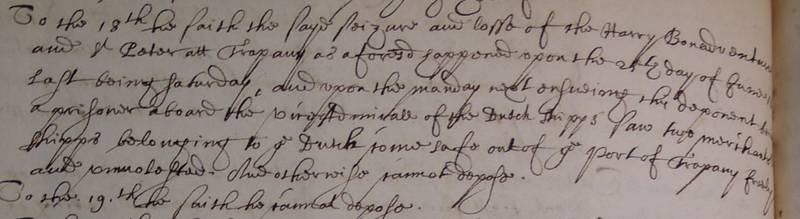 To the 18th he saith the sayd seizure and losse of the Harry Bonadventure
and St Peter att Trapany as aforesd happened upon the 25th day of
last being Saturday, and upon the munday next ensueing this deponent
a prisoner aboard the viceadmirale of the Dutch shipps saw two merchants
shipps belonging to ye Dutch come safe out of ye port of Trapany freely
and unmolested. And otherwise cannot depose.
To the 19.th he saith he cannot depose.